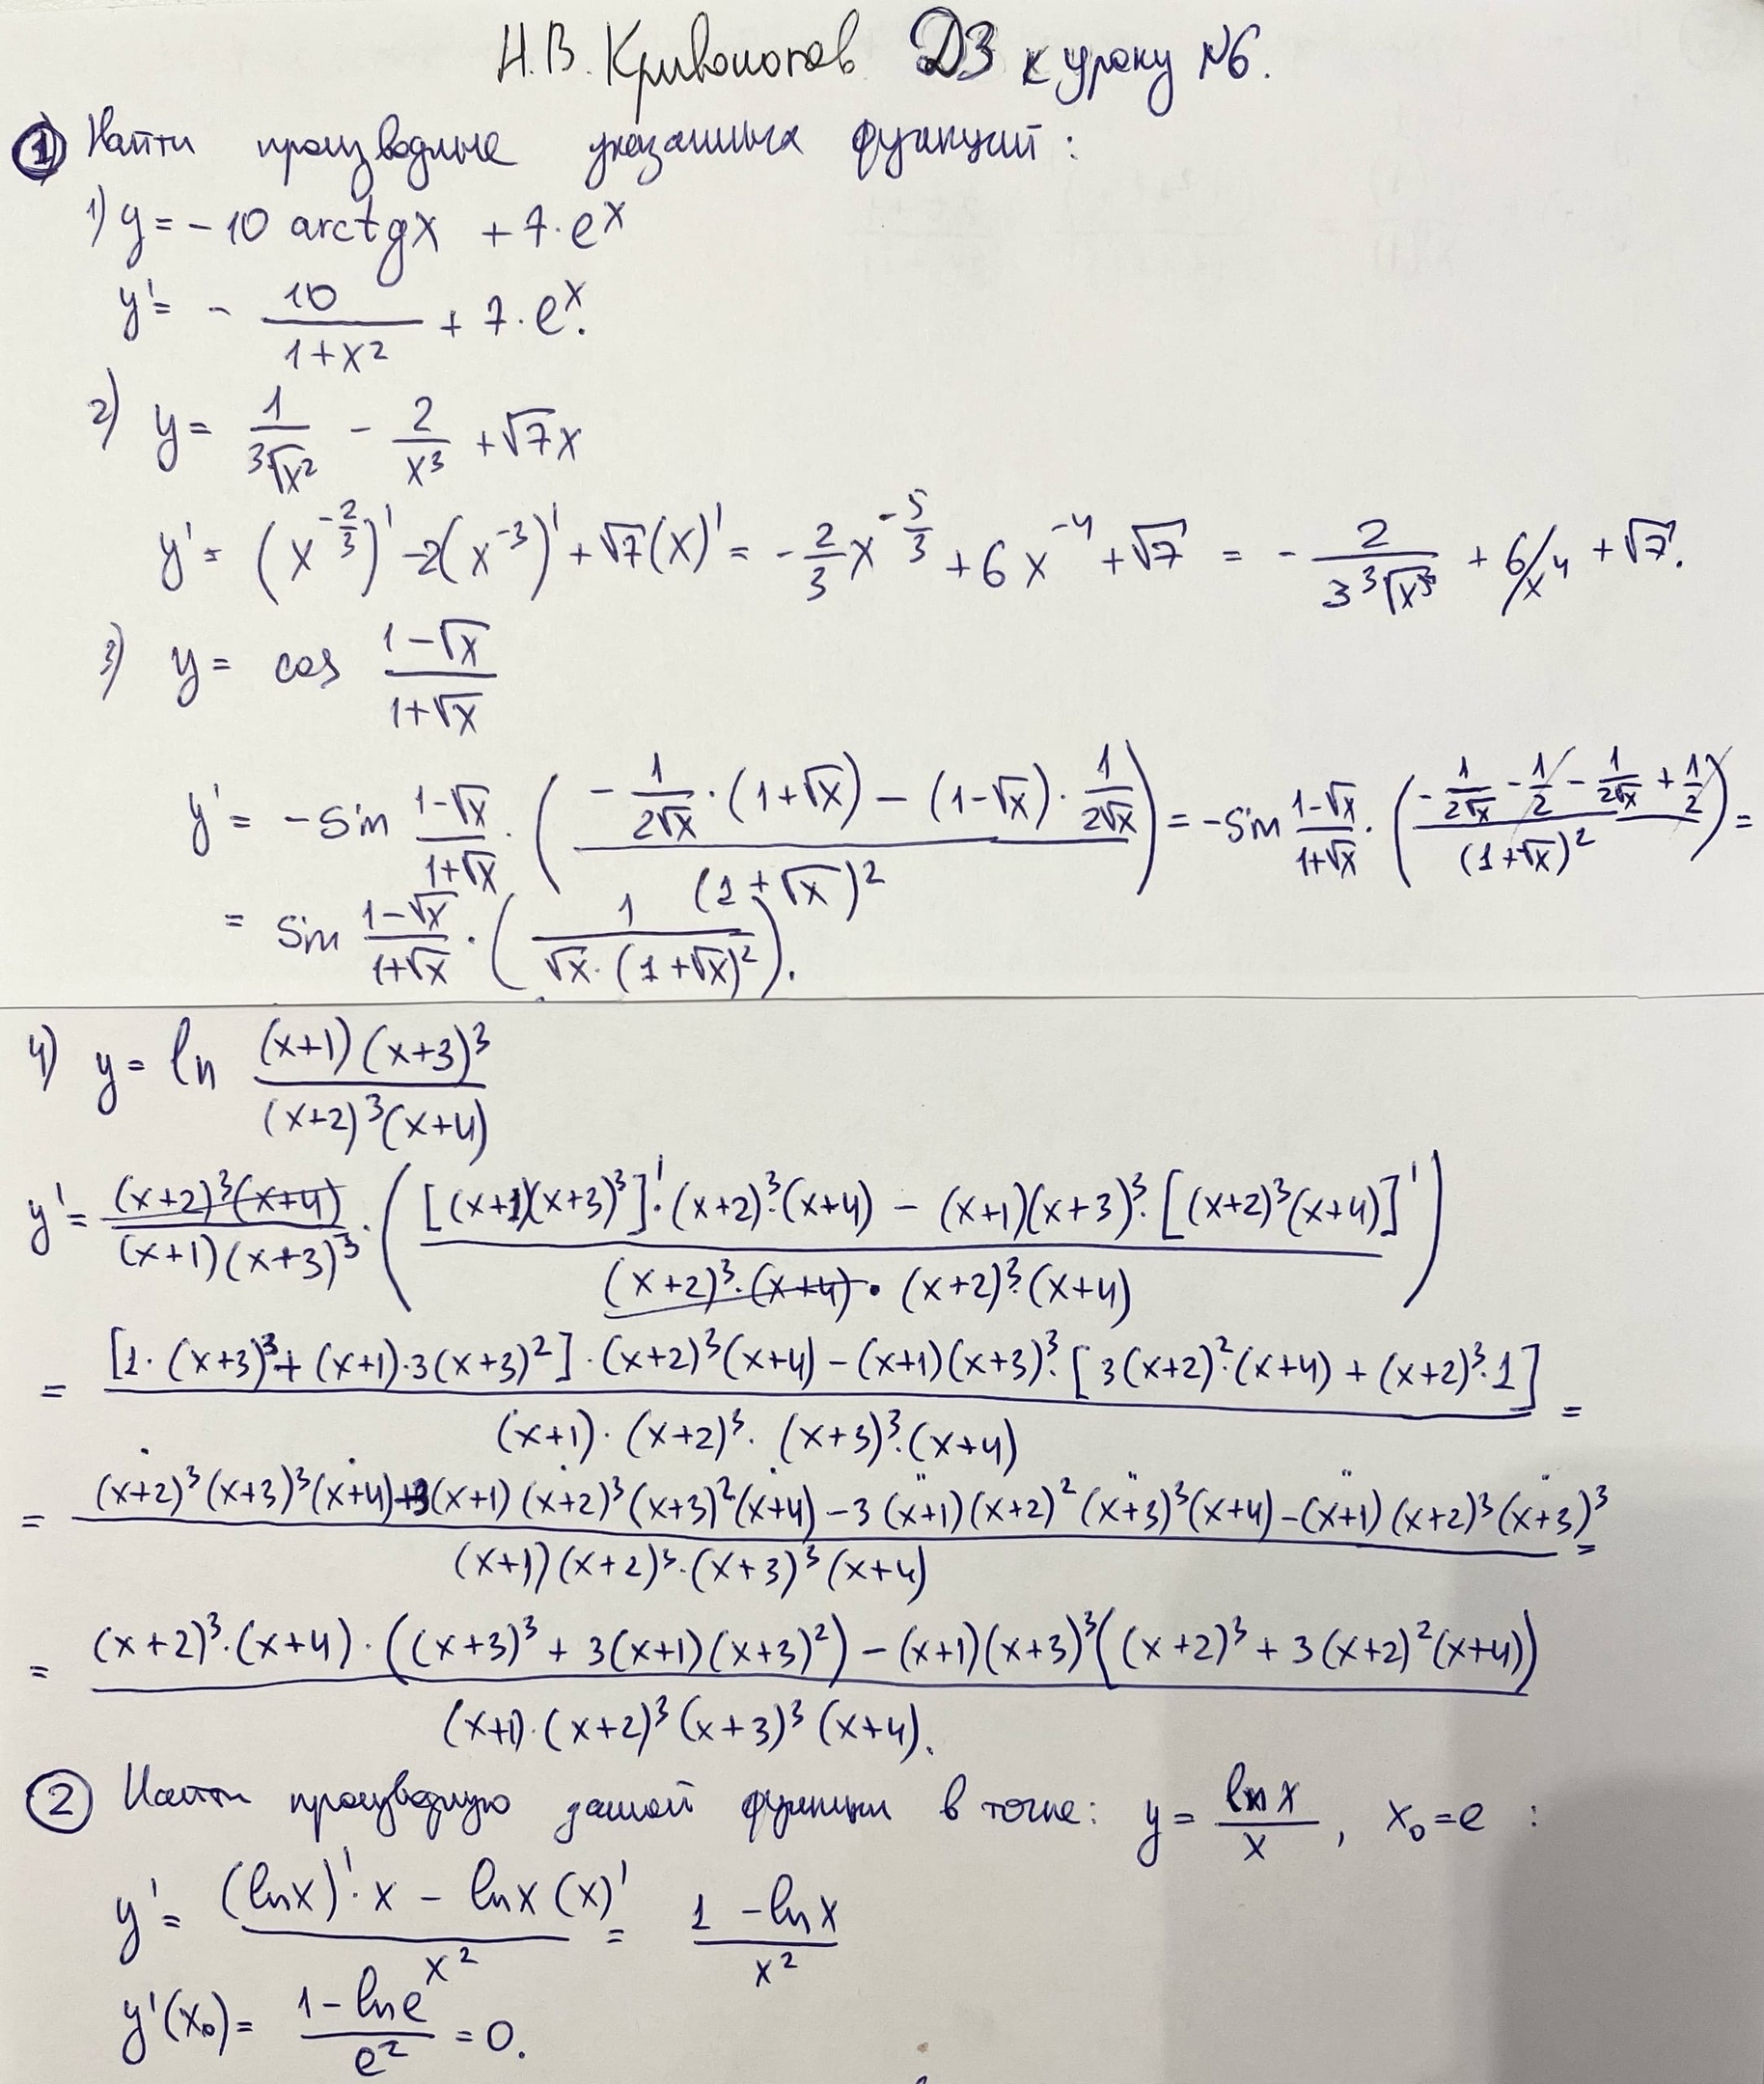 Н.В. Кривоногов ДЗ к уроку №6.
① Найти производные указанных функций:
1) y = - 10 arctgx + 7·e^x
y' = - 10/(1+x²) + 7·e^x.
2) y = 1/∛(x²) - 2/x³ + √7x
y' = (x^(-2/3))' - 2(x^(-3))' + √7(x)' = -2/3 x^(-5/3) + 6x^(-4) + √7 = - 2/(3∛(x⁵)) + 6/x⁴ + √7.
3) y = cos (1-√x)/(1+√x)
y' = -sin (1-√x)/(1+√x) · ((-1/(2√x)·(1+√x) - (1-√x)·1/(2√x))/(1+√x)²) = -sin (1-√x)/(1+√x) · ((-1/(2√x) - 1/2 - 1/(2√x) + 1/2)/(1+√x)²) =
= sin (1-√x)/(1+√x) · (1/(√x·(1+√x)²)).
4) y = ln ((x+1)(x+3)³)/((x+2)³(x+4))
y' = ((x+2)³(x+4))/((x+1)(x+3)³) · (([(x+1)(x+3)³]'·(x+2)³·(x+4) - (x+1)(x+3)³·[(x+2)³(x+4)]')/((x+2)³·(x+4)·(x+2)³·(x+4)))
= ([1·(x+3)³ + (x+1)·3(x+3)²]·(x+2)³(x+4) - (x+1)(x+3)³·[3(x+2)²·(x+4) + (x+2)³·1])/((x+1)·(x+2)³·(x+3)³·(x+4)) =
= ((x+2)³(x+3)³(x+4)+3(x+1)(x+2)³(x+3)²(x+4) - 3(x+1)(x+2)²(x+3)³(x+4) - (x+1)(x+2)³(x+3)³)/((x+1)(x+2)³·(x+3)³(x+4)) =
= ((x+2)³·(x+4)·((x+3)³ + 3(x+1)(x+3)²) - (x+1)(x+3)³((x+2)³ + 3(x+2)²(x+4)))/((x+1)·(x+2)³(x+3)³(x+4)).
② Найти производную данной функции в точке: y = lnx/x, x₀=e :
y' = ((lnx)'·x - lnx(x)')/x² = (1 - lnx)/x²
y'(x₀) = (1 - lne)/e² = 0.